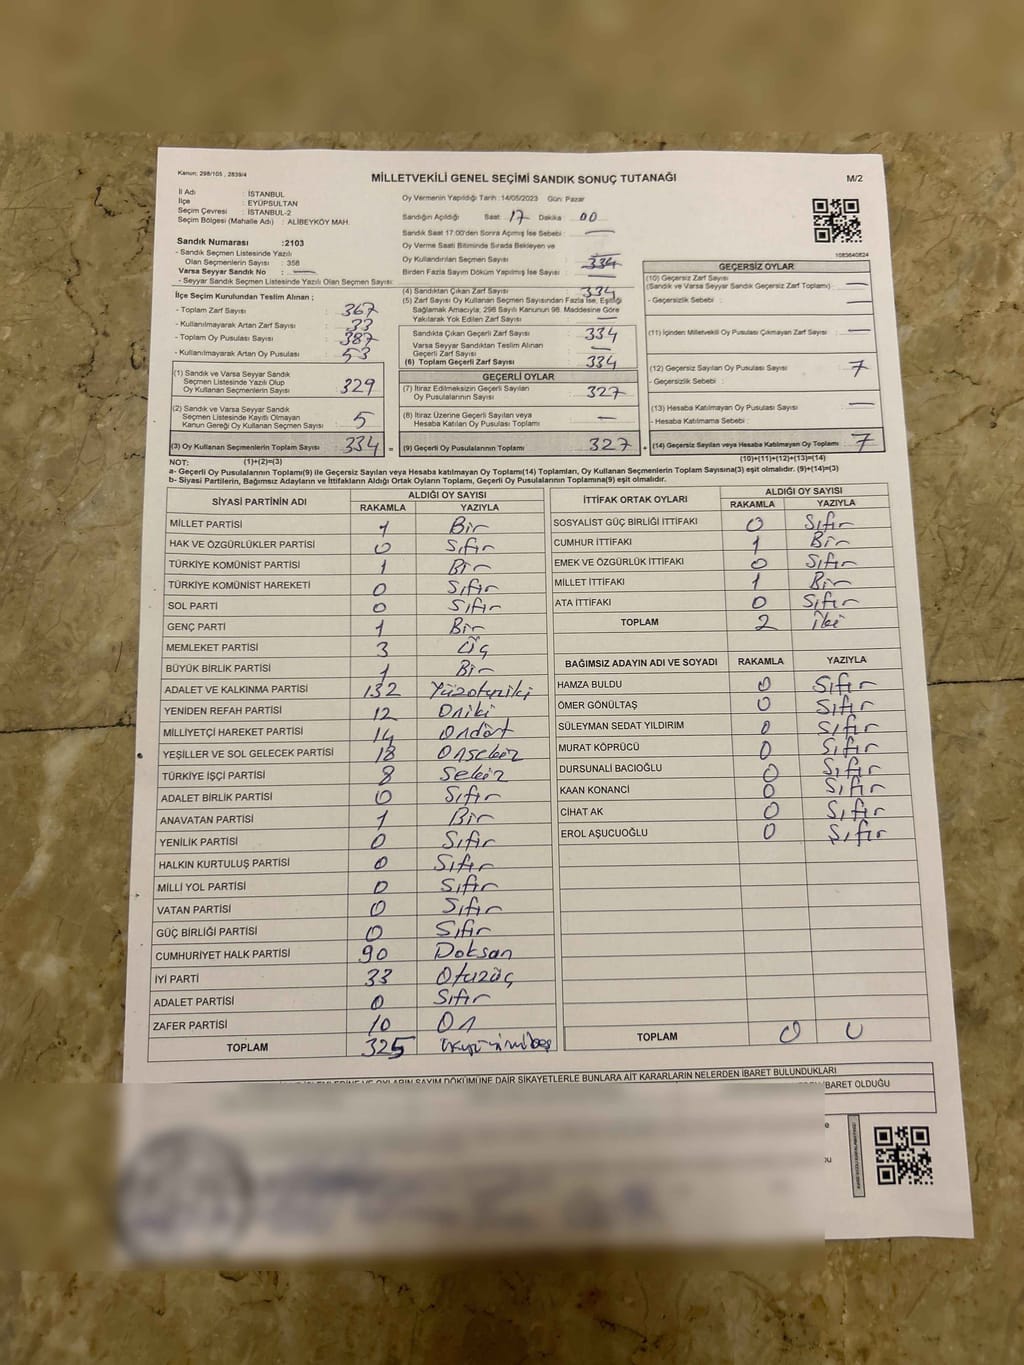 Kanun; 298/105 , 2839/4
MİLLETVEKİLİ GENEL SEÇİMİ SANDIK SONUÇ TUTANAĞI
M/2
İl Adı : İSTANBUL
İlçe : EYÜPSULTAN
Seçim Çevresi : İSTANBUL-2
Seçim Bölgesi (Mahalle Adı) : ALİBEYKÖY MAH.
Sandık Numarası :2103
- Sandık Seçmen Listesinde Yazılı
Olan Seçmenlerin Sayısı : 358
Varsa Seyyar Sandık No : —
- Seyyar Sandık Seçmen Listesinde Yazılı Olan Seçmen Sayısı:
İlçe Seçim Kurulundan Teslim Alınan ;
- Toplam Zarf Sayısı : 367
- Kullanılmayarak Artan Zarf Sayısı : 33
- Toplam Oy Pusulası Sayısı : 387
- Kullanılmayarak Artan Oy Pusulası : 53
(1) Sandık ve Varsa Seyyar Sandık
Seçmen Listesinde Yazılı Olup
Oy Kullanan Seçmenlerin Sayısı : 329
(2) Sandık ve Varsa Seyyar Sandık
Seçmen Listesinde Kayıtlı Olmayan
Kanun Gereği Oy Kullanan Seçmen Sayısı : 5
(3) Oy Kullanan Seçmenlerin Toplam Sayısı : 334
(1)+(2)=(3)
Oy Vermenin Yapıldığı Tarih :14/05/2023 Gün: Pazar
Sandığın Açıldığı Saat: 17 Dakika 00
Sandık Saat 17.00'den Sonra Açılmış İse Sebebi : —
Oy Verme Saati Bitiminde Sırada Bekleyen ve
Oy Kullandırılan Seçmen Sayısı : 334
Birden Fazla Sayım Döküm Yapılmış İse Sayısı : —
(4) Sandıktan Çıkan Zarf Sayısı : 334
(5) Zarf Sayısı Oy Kullanan Seçmen Sayısından Fazla İse, Eşitliği
Sağlamak Amacıyla; 298 Sayılı Kanunun 98. Maddesine Göre
Yakılarak Yok Edilen Zarf Sayısı : —
Sandıkta Çıkan Geçerli Zarf Sayısı : 334
Varsa Seyyar Sandıktan Teslim Alınan
Geçerli Zarf Sayısı : —
(6) Toplam Geçerli Zarf Sayısı : 334
GEÇERLİ OYLAR
(7) İtiraz Edilmeksizin Geçerli Sayılan
Oy Pusulalarının Sayısı : 327
(8) İtiraz Üzerine Geçerli Sayılan veya
Hesaba Katılan Oy Pusulaları Toplamı : —
= (9) Geçerli Oy Pusulalarının Toplamı : 327
1083640824
GEÇERSİZ OYLAR
(10) Geçersiz Zarf Sayısı
(Sandık ve Varsa Seyyar Sandık Geçersiz Zarf Toplamı) : —
- Geçersizlik Sebebi : —
(11) İçinden Milletvekili Oy Pusulası Çıkmayan Zarf Sayısı : —
(12) Geçersiz Sayılan Oy Pusulası Sayısı : 7
- Geçersizlik Sebebi :
(13) Hesaba Katılmayan Oy Pusulası Sayısı : —
- Hesaba Katılmama Sebebi :
+ (14) Geçersiz Sayılan veya Hesaba Katılmayan Oy Toplamı : 7
(10)+(11)+(12)+(13)=(14)
NOT:
a- Geçerli Oy Pusulalarının Toplamı(9) ile Geçersiz Sayılan veya Hesaba katılmayan Oy Toplamı(14) Toplamları, Oy Kullanan Seçmenlerin Toplam Sayısına(3) eşit olmalıdır. (9)+(14)=(3)
b- Siyasi Partilerin, Bağımsız Adayların ve İttifakların Aldığı Ortak Oyların Toplamı, Geçerli Oy Pusulalarının Toplamına(9) eşit olmalıdır.
SİYASİ PARTİNİN ADI ALDIĞI OY SAYISI
RAKAMLA YAZIYLA
MİLLET PARTİSİ 1 Bir
HAK VE ÖZGÜRLÜKLER PARTİSİ 0 Sıfır
TÜRKİYE KOMÜNİST PARTİSİ 1 Bir
TÜRKİYE KOMÜNİST HAREKETİ 0 Sıfır
SOL PARTİ 0 Sıfır
GENÇ PARTİ 1 Bir
MEMLEKET PARTİSİ 3 Üç
BÜYÜK BİRLİK PARTİSİ 1 Bir
ADALET VE KALKINMA PARTİSİ 132 Yüzotuziki
YENİDEN REFAH PARTİSİ 12 Oniki
MİLLİYETÇİ HAREKET PARTİSİ 14 Ondört
YEŞİLLER VE SOL GELECEK PARTİSİ 18 Onsekiz
TÜRKİYE İŞÇİ PARTİSİ 8 Sekiz
ADALET BİRLİK PARTİSİ 0 Sıfır
ANAVATAN PARTİSİ 1 Bir
YENİLİK PARTİSİ 0 Sıfır
HALKIN KURTULUŞ PARTİSİ 0 Sıfır
MİLLİ YOL PARTİSİ 0 Sıfır
VATAN PARTİSİ 0 Sıfır
GÜÇ BİRLİĞİ PARTİSİ 0 Sıfır
CUMHURİYET HALK PARTİSİ 90 Doksan
İYİ PARTİ 33 Otuzüç
ADALET PARTİSİ 0 Sıfır
ZAFER PARTİSİ 10 On
TOPLAM 325
İTTİFAK ORTAK OYLARI ALDIĞI OY SAYISI
RAKAMLA YAZIYLA
SOSYALİST GÜÇ BİRLİĞİ İTTİFAKI 0 Sıfır
CUMHUR İTTİFAKI 1 Bir
EMEK VE ÖZGÜRLÜK İTTİFAKI 0 Sıfır
MİLLET İTTİFAKI 1 Bir
ATA İTTİFAKI 0 Sıfır
TOPLAM 2 İki
BAĞIMSIZ ADAYIN ADI VE SOYADI RAKAMLA YAZIYLA
HAMZA BULDU 0 Sıfır
ÖMER GÖNÜLTAŞ 0 Sıfır
SÜLEYMAN SEDAT YILDIRIM 0 Sıfır
MURAT KÖPRÜCÜ 0 Sıfır
DURSUNALİ BACIOĞLU 0 Sıfır
KAAN KONANCİ 0 Sıfır
CİHAT AK 0 Sıfır
EROL AŞUCUOĞLU 0 Sıfır
TOPLAM 0 0
OYLARIN SAYIM DÖKÜMÜNE DAİR ŞİKAYETLERLE BUNLARA AİT KARARLARIN NELERDEN İBARET BULUNDUKLARI
İBARET OLDUĞU